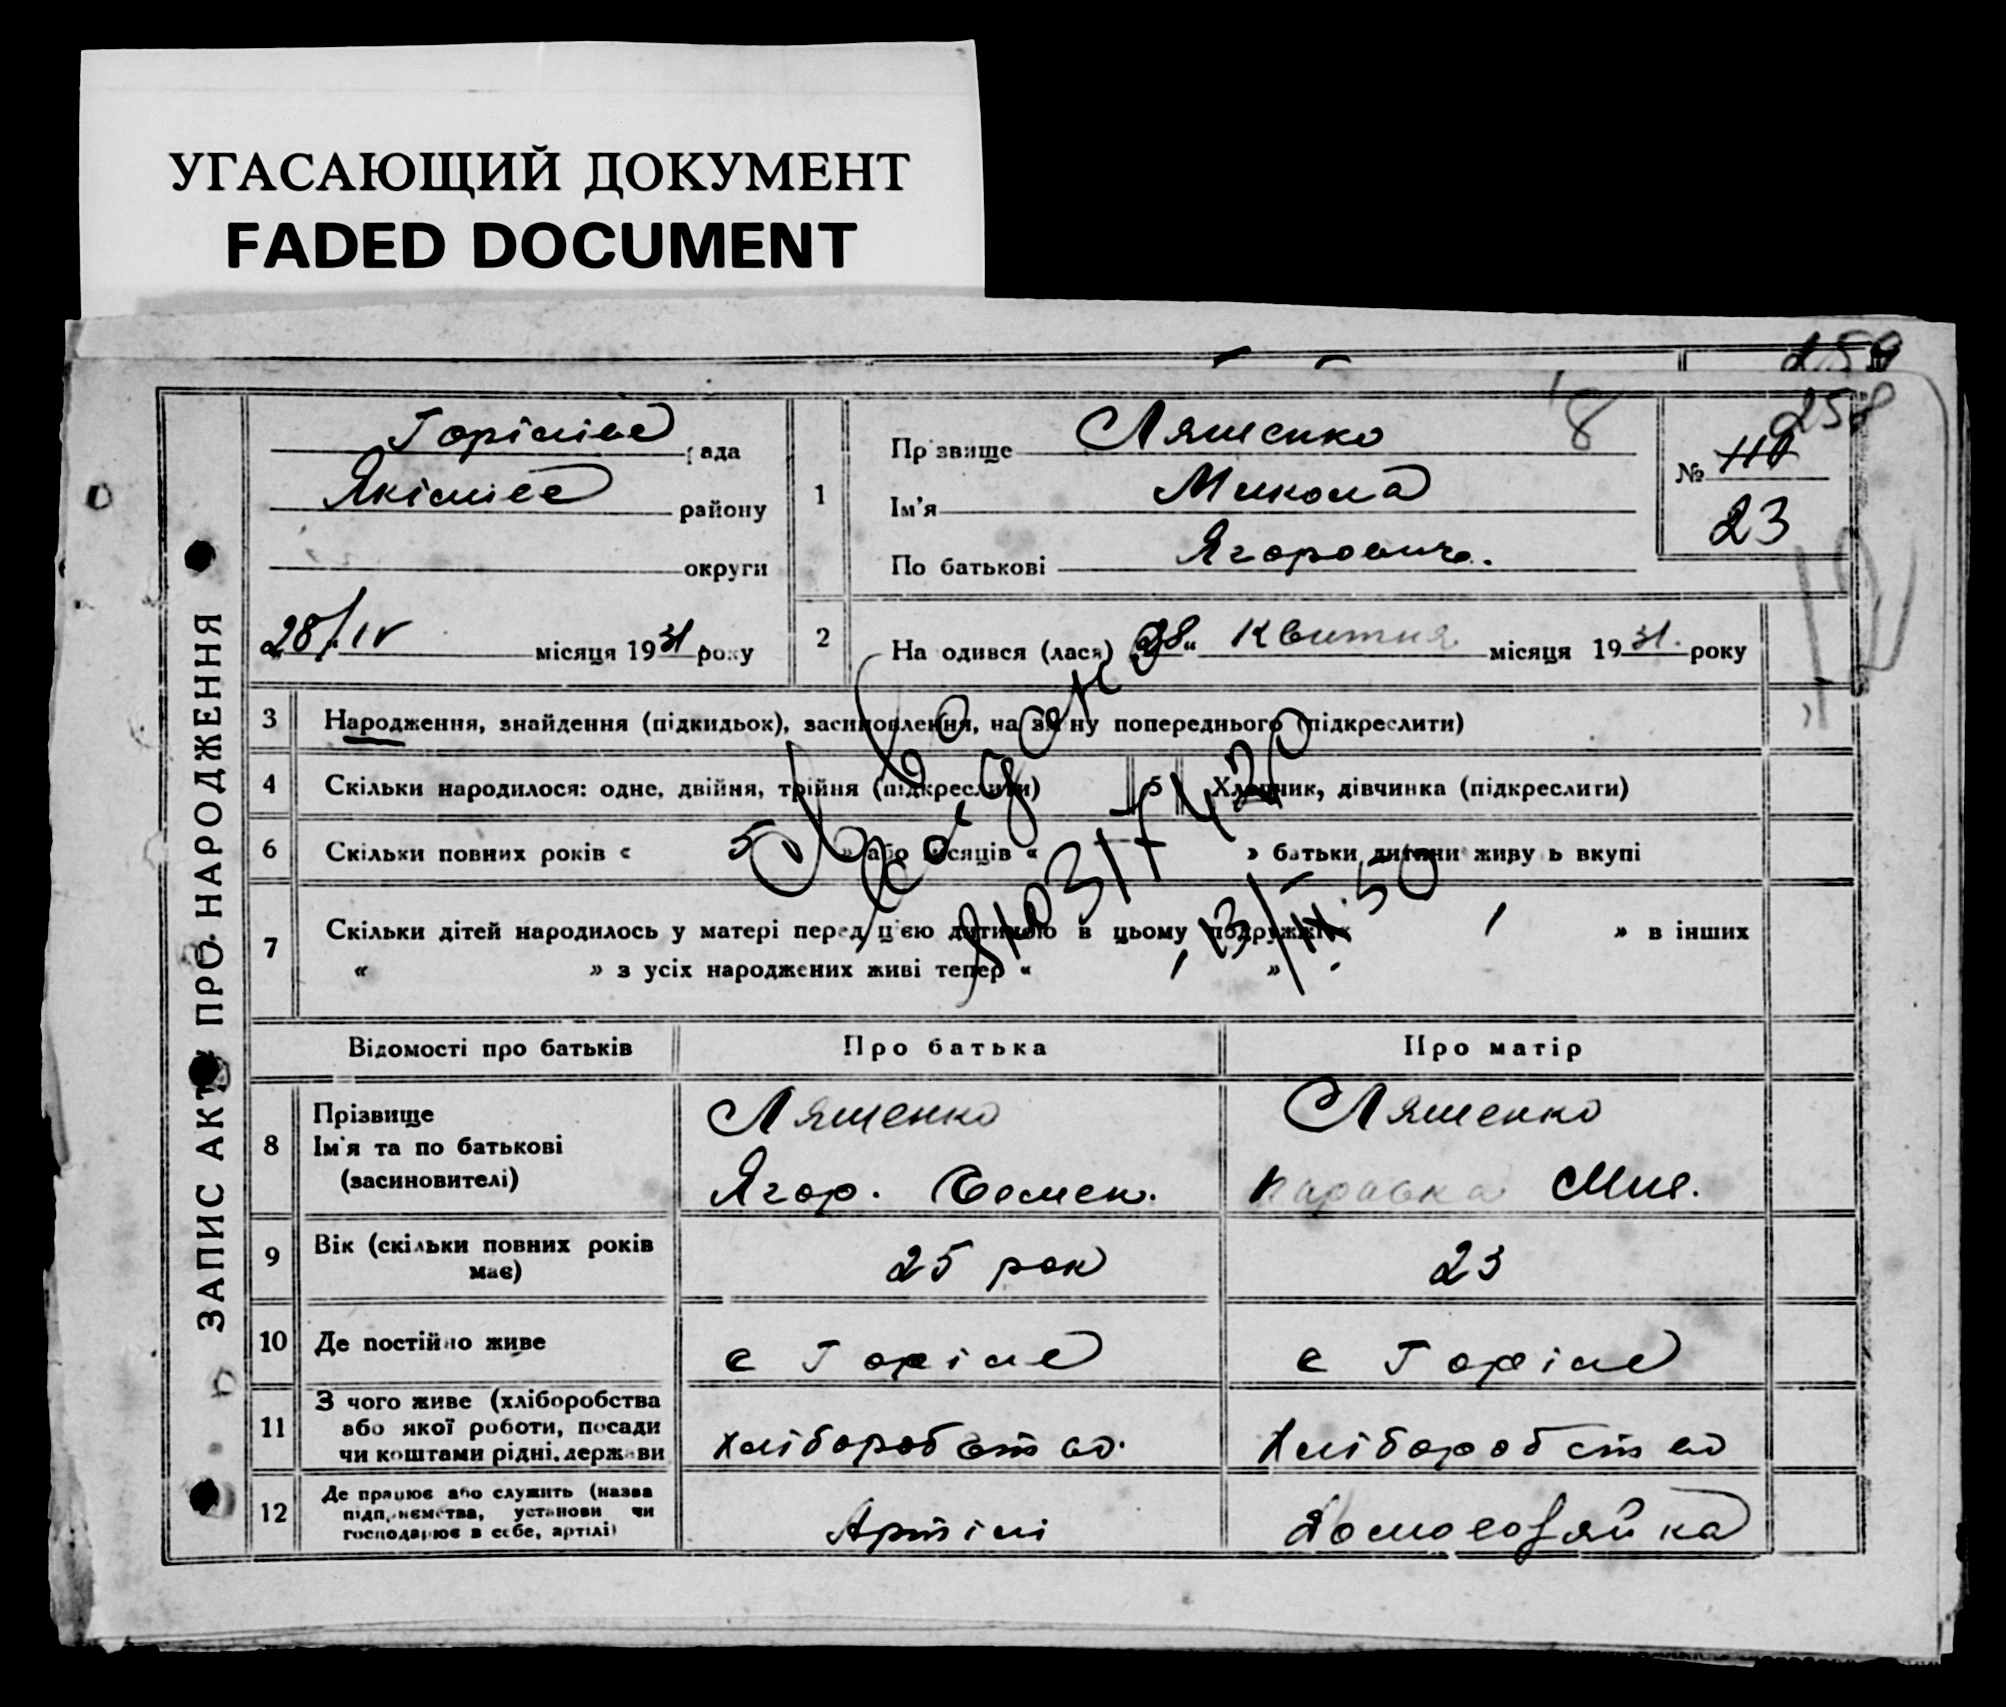 УГАСАЮЩИЙ ДОКУМЕНТ
FADED DOCUMENT
259
258
ЗАПИС АКТУ ПРО НАРОДЖЕННЯ
рада
району
округи
28/IV місяця 1931 року
1
Прізвище Ляшенко
8
Ім'я Микола
По батькові Ягорович.
№ 110
23
2
Народився (лася) „28“ Квитня місяця 1931. року
3 Народження, знайдення (підкидьок), засиновлення, на зміну попереднього (підкреслити)
4 Скільки народилося: одне, двійня, трійня (підкреслити)
5 Хлопчик, дівчинка (підкреслити)
6 Скільки повних років « 5 » або місяців « » батьки дитини живуть вкупі
7 Скільки дітей народилось у матері перед цією дитиною в цьому подружжі « 1 » в інших
« » з усіх народжених живі тепер « 1 »
Відомості про батьків Про батька Про матір
8 Прізвище
Ім'я та по батькові
(засиновителі)
Ляшенко
Ягор. Семен.
Ляшенко
9 Вік (скільки повних років має)
25 рок
23
10 Де постійно живе
11 З чого живе (хліборобства
або якої роботи, посади
чи коштами рідні, держави
хліборобство.
Хліборобство
12 Де працює або служить (назва
підприємства, установи чи
господарює в себе, артілі)
Артілі
Домохозяйка